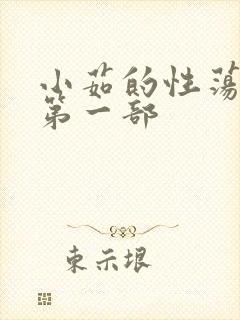 小茹的性荡
第一部
束示垠